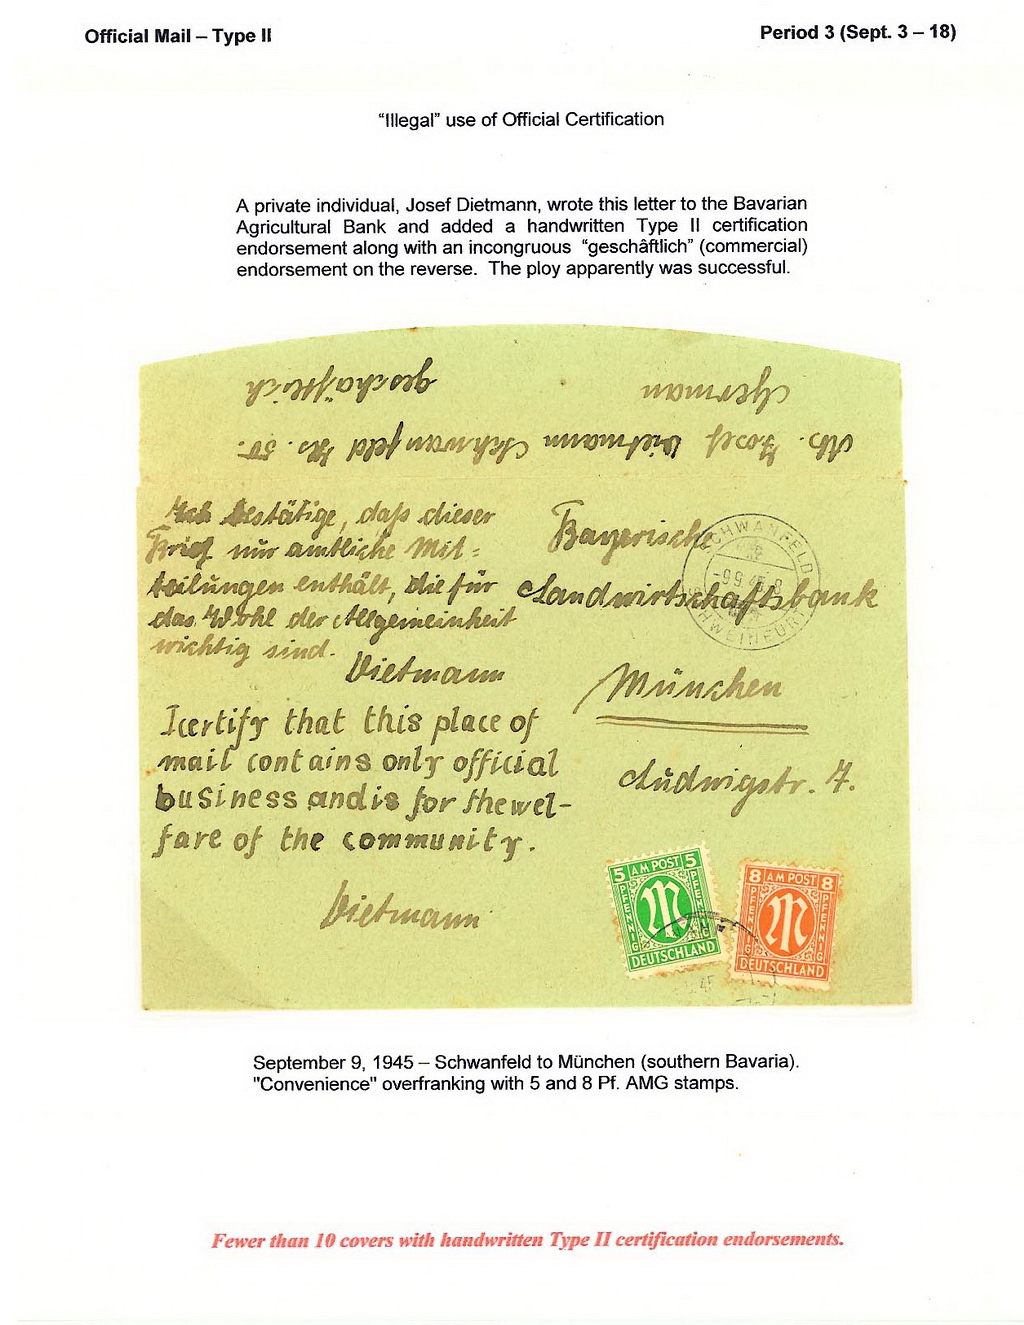 Official Mail – Type II
Period 3 (Sept. 3 – 18)
“Illegal” use of Official Certification
A private individual, Josef Dietmann, wrote this letter to the Bavarian
Agricultural Bank and added a handwritten Type II certification
endorsement along with an incongruous “geschâftlich” (commercial)
endorsement on the reverse. The ploy apparently was successful.
Ab. Josef Dietmann Schwanfeld No. 50.
German
geschäftlich
Ich bestätige, daß dieser
Brief nur amtliche Mit=
teilungen enthält, die für
das Wohl der Allgemeinheit
wichtig sind.
Dietmann
I certify that this place of
mail contains only official
business and is for the wel-
fare of the community.
Dietmann
Bayerische
Landwirtschaftsbank
München
Ludwigstr. 7.
SCHWANFELD
-9.9.45.8
SCHWEINFURT
5 AM POST 5
PFENNIG
PFENNIG
M
DEUTSCHLAND
8 AM POST 8
PFENNIG
PFENNIG
M
DEUTSCHLAND
September 9, 1945 – Schwanfeld to München (southern Bavaria).
"Convenience" overfranking with 5 and 8 Pf. AMG stamps.
Fewer than 10 covers with handwritten Type II certification endorsements.